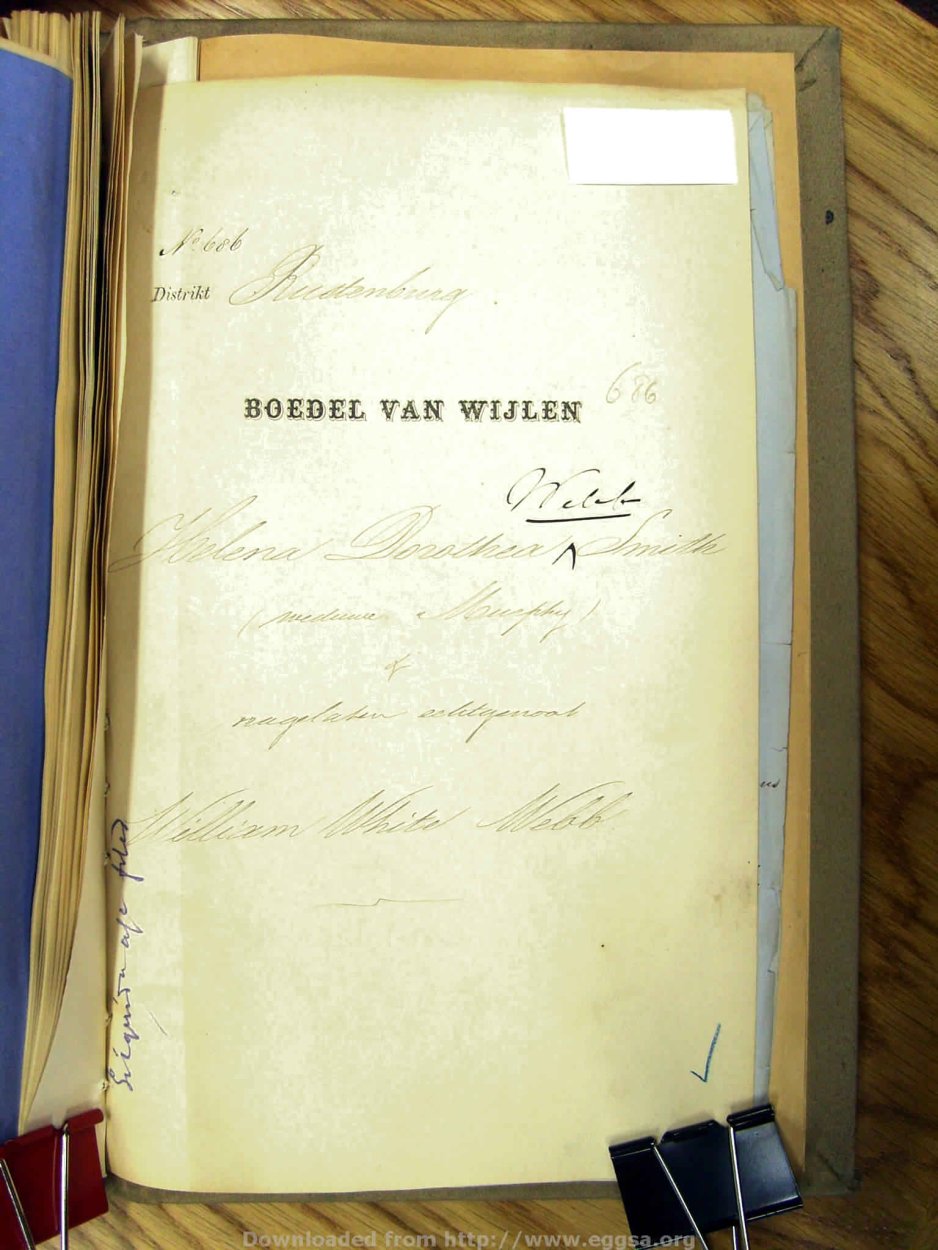 No 686
Distrikt Rustenburg.
686
BOEDEL VAN WIJLEN
Webb
Helena Dorothea ^ Smith
(weduwe Murphy)
&
nagelaten echtgenoot
William White Webb
files
Downloaded from http://www.eggsa.org